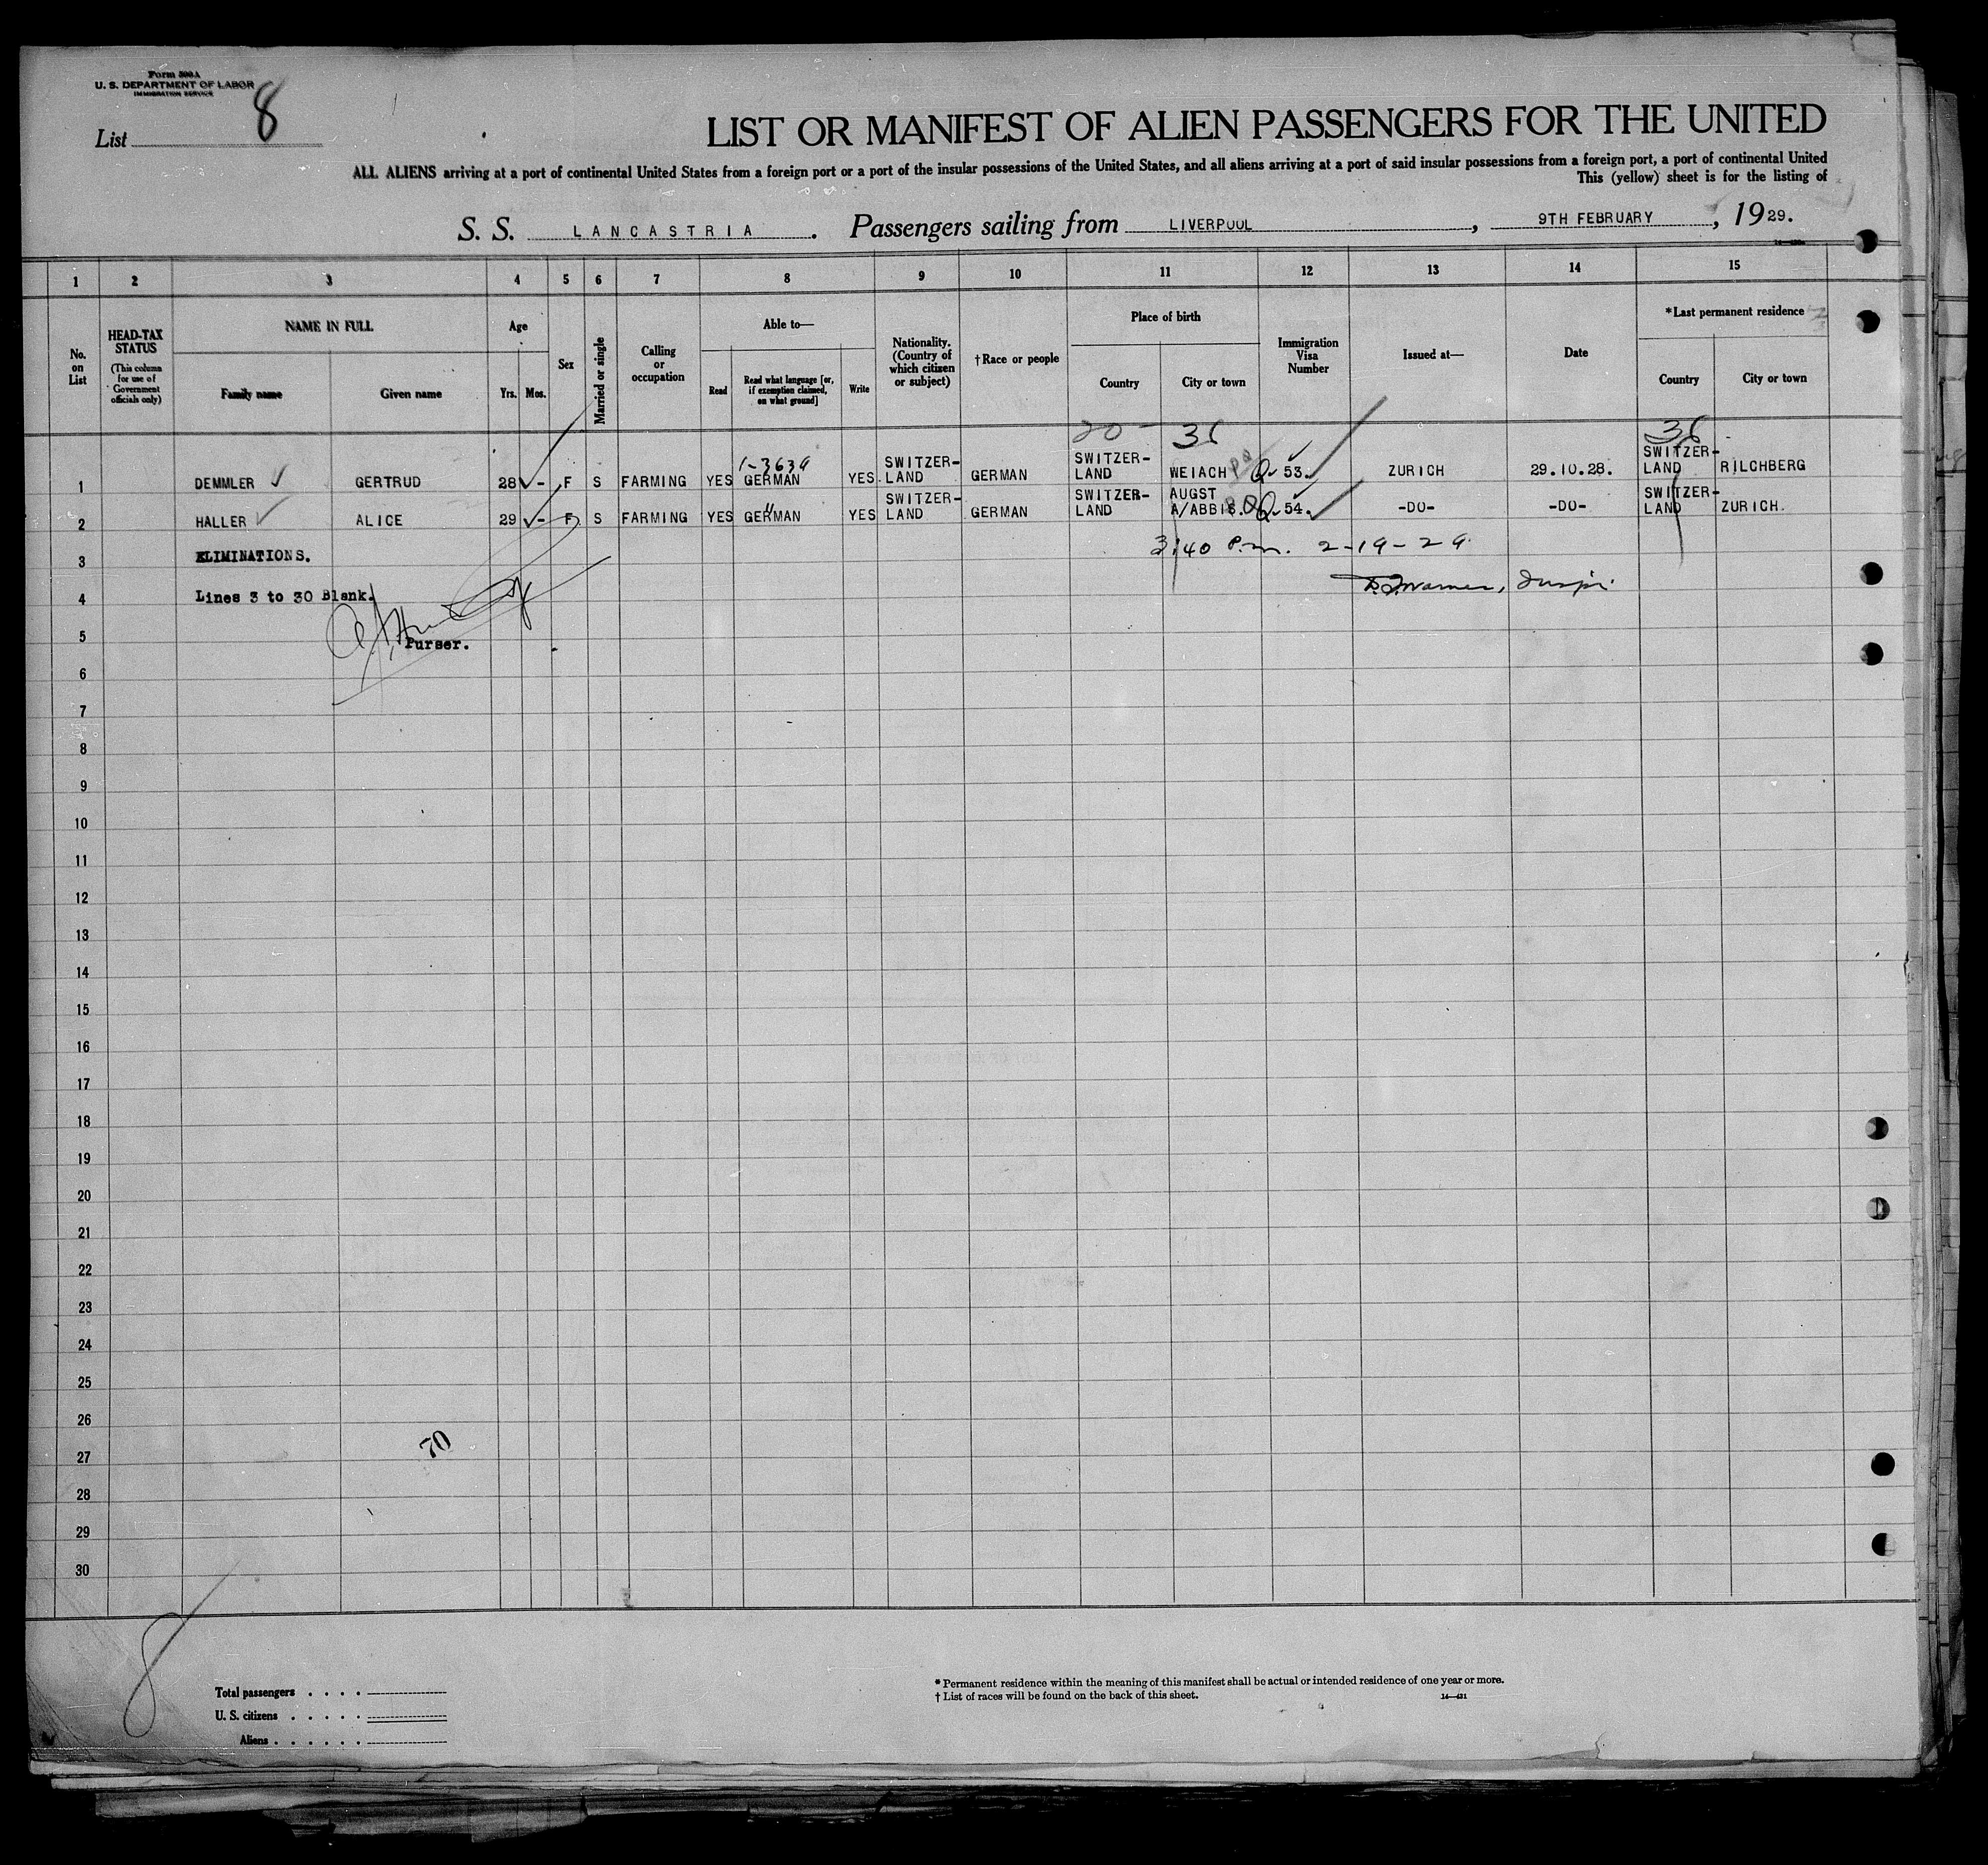 Form 500A
U. S. DEPARTMENT OF LABOR
IMMIGRATION SERVICE
List 8
LIST OR MANIFEST OF ALIEN PASSENGERS FOR THE UNITED
ALL ALIENS arriving at a port of continental United States from a foreign port or a port of the insular possessions of the United States, and all aliens arriving at a port of said insular possessions from a foreign port, a port of continental United
This (yellow) sheet is for the listing of
S. S. LANCASTRIA. Passengers sailing from LIVERPOOL, 9TH FEBRUARY, 1929.
1 2 3 4 5 6 7 8 9 10 11 12 13 14 15
No. on List
HEAD-TAX STATUS
(This column for use of Government officials only)
NAME IN FULL
Family name
Given name
Age
Yrs. Mos.
Sex
Married or single
Calling or occupation
Able to—
Read
Read what language [or, if exemption claimed, on what ground]
Write
Nationality. (Country of which citizen or subject)
†Race or people
Place of birth
Country
City or town
Immigration Visa Number
Issued at—
Date
*Last permanent residence
Country
City or town
20 - 36 36
1 DEMMLER GERTRUD 28 - F S FARMING YES 1-3639 GERMAN YES SWITZER-LAND GERMAN SWITZER-LAND WEIACH Q 53 ZURICH 29.10.28. SWITZER-LAND RILCHBERG
2 HALLER ALICE 29 - F S FARMING YES " GERMAN YES SWITZER-LAND GERMAN SWITZER-LAND AUGST A/ABBIS. Q 54. -DO- -DO- SWITZER-LAND ZURICH.
3 ELIMINATIONS. 3:40 P.m. 2-19-29.
4 Lines 3 to 30 Blank.
5 Purser.
6
7
8
9
10
11
12
13
14
15
16
17
18
19
20
21
22
23
24
25
26
27 70
28
29
30
8
Total passengers . . . .
U. S. citizens . . . . .
Aliens . . . . . .
* Permanent residence within the meaning of this manifest shall be actual or intended residence of one year or more.
† List of races will be found on the back of this sheet. 14—431